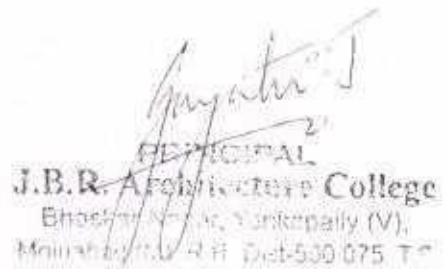 PRINCIPAL
J.B.R. Architecture College
Bhaskar Nagar, Yenkapally (V),
R.R. Dist-500 075. T.S.